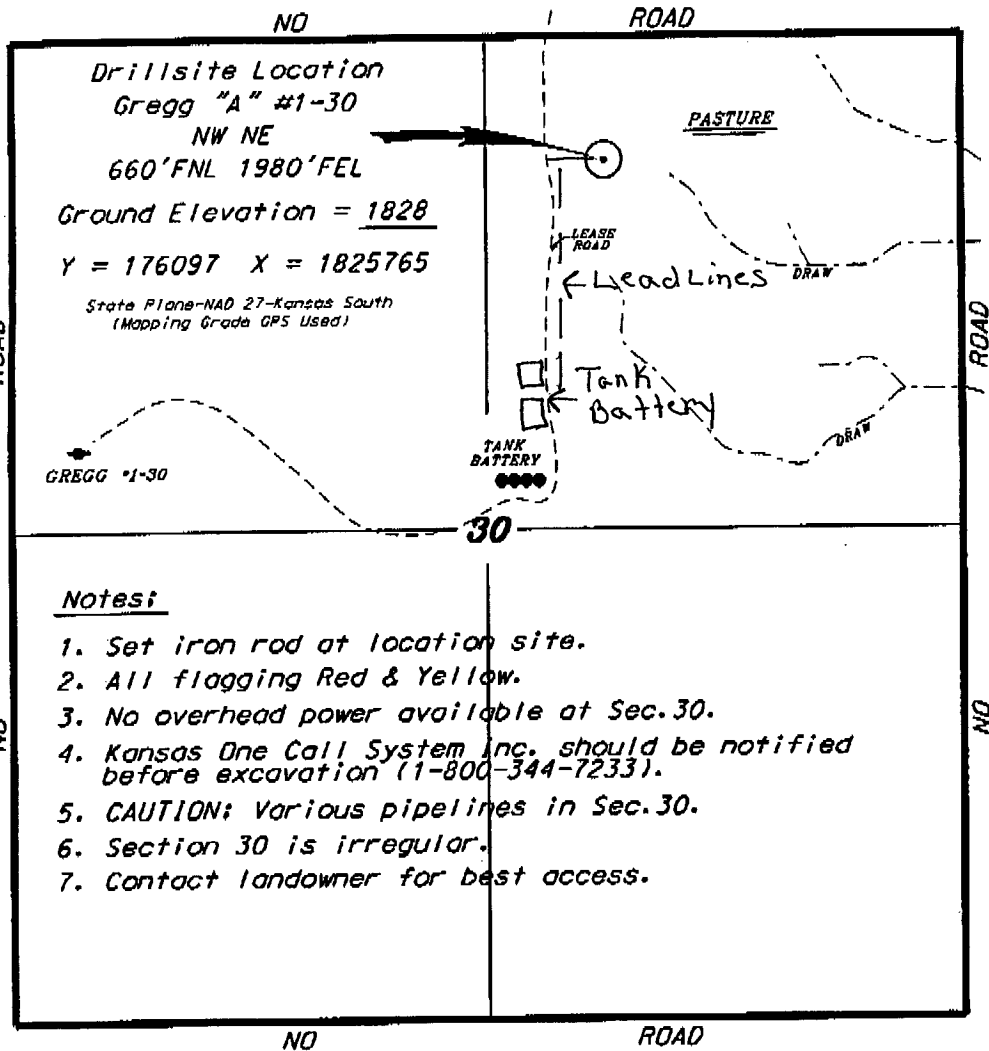 NO ROAD
Drillsite Location
Gregg "A" #1-30
NW NE
660'FNL 1980'FEL
Ground Elevation = 1828
Y = 176097 X = 1825765
State Plane-NAD 27-Kansas South
(Mapping Grade GPS Used)
PASTURE
LEASE
ROAD
← Lead Lines
DRAW
← Tank
Battery
DRAW
TANK
BATTERY
GREGG #1-30
30
ROAD
ROAD
Notes:
1. Set iron rod at location site.
2. All flagging Red & Yellow.
3. No overhead power available at Sec.30.
4. Kansas One Call System Inc. should be notified
before excavation (1-800-344-7233).
5. CAUTION: Various pipelines in Sec.30.
6. Section 30 is irregular.
7. Contact landowner for best access.
NO
NO
NO ROAD